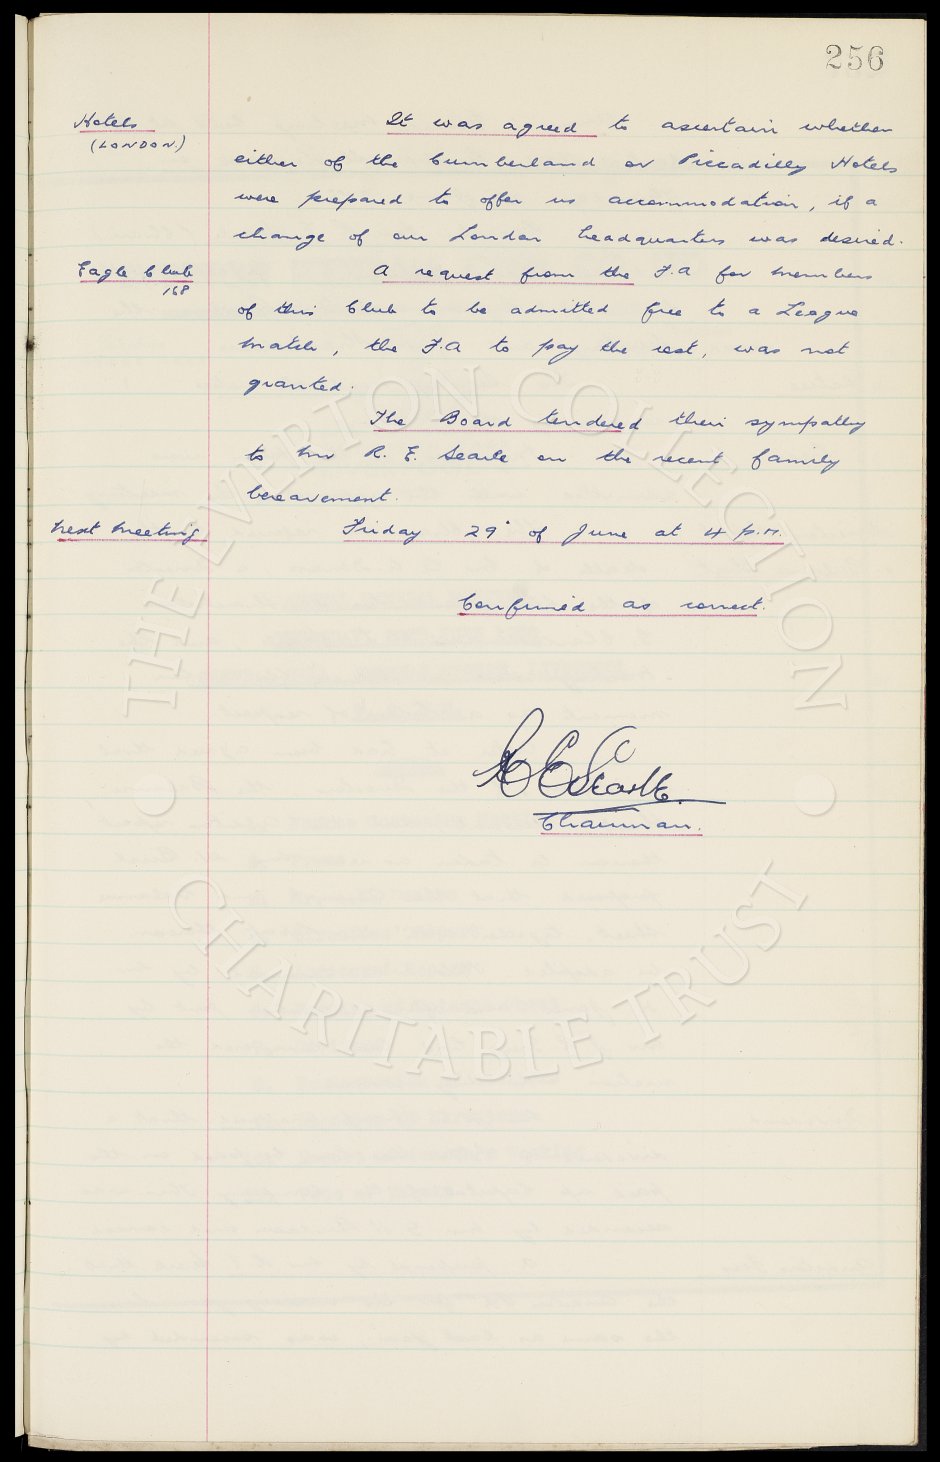 256
Hotels
(LONDON.)
It was agreed to ascertain whether
either of the Cumberland or Piccadilly Hotels
were prepared to offer us accommodation, if a
change of our London headquarters was desired.
Eagle Club
168
A request from the F.A for members
of this Club to be admitted free to a League
match, the F.A to pay the cost, was not
granted.
The Board tendered their sympathy
to Mr R. E. Searle on the recent family
bereavement.
Next Meeting
Friday 29" of June at 4 p.m.
Confirmed as correct.
Searle.
Chairman.
THE EVERTON COLLECTION
CHARITABLE TRUST